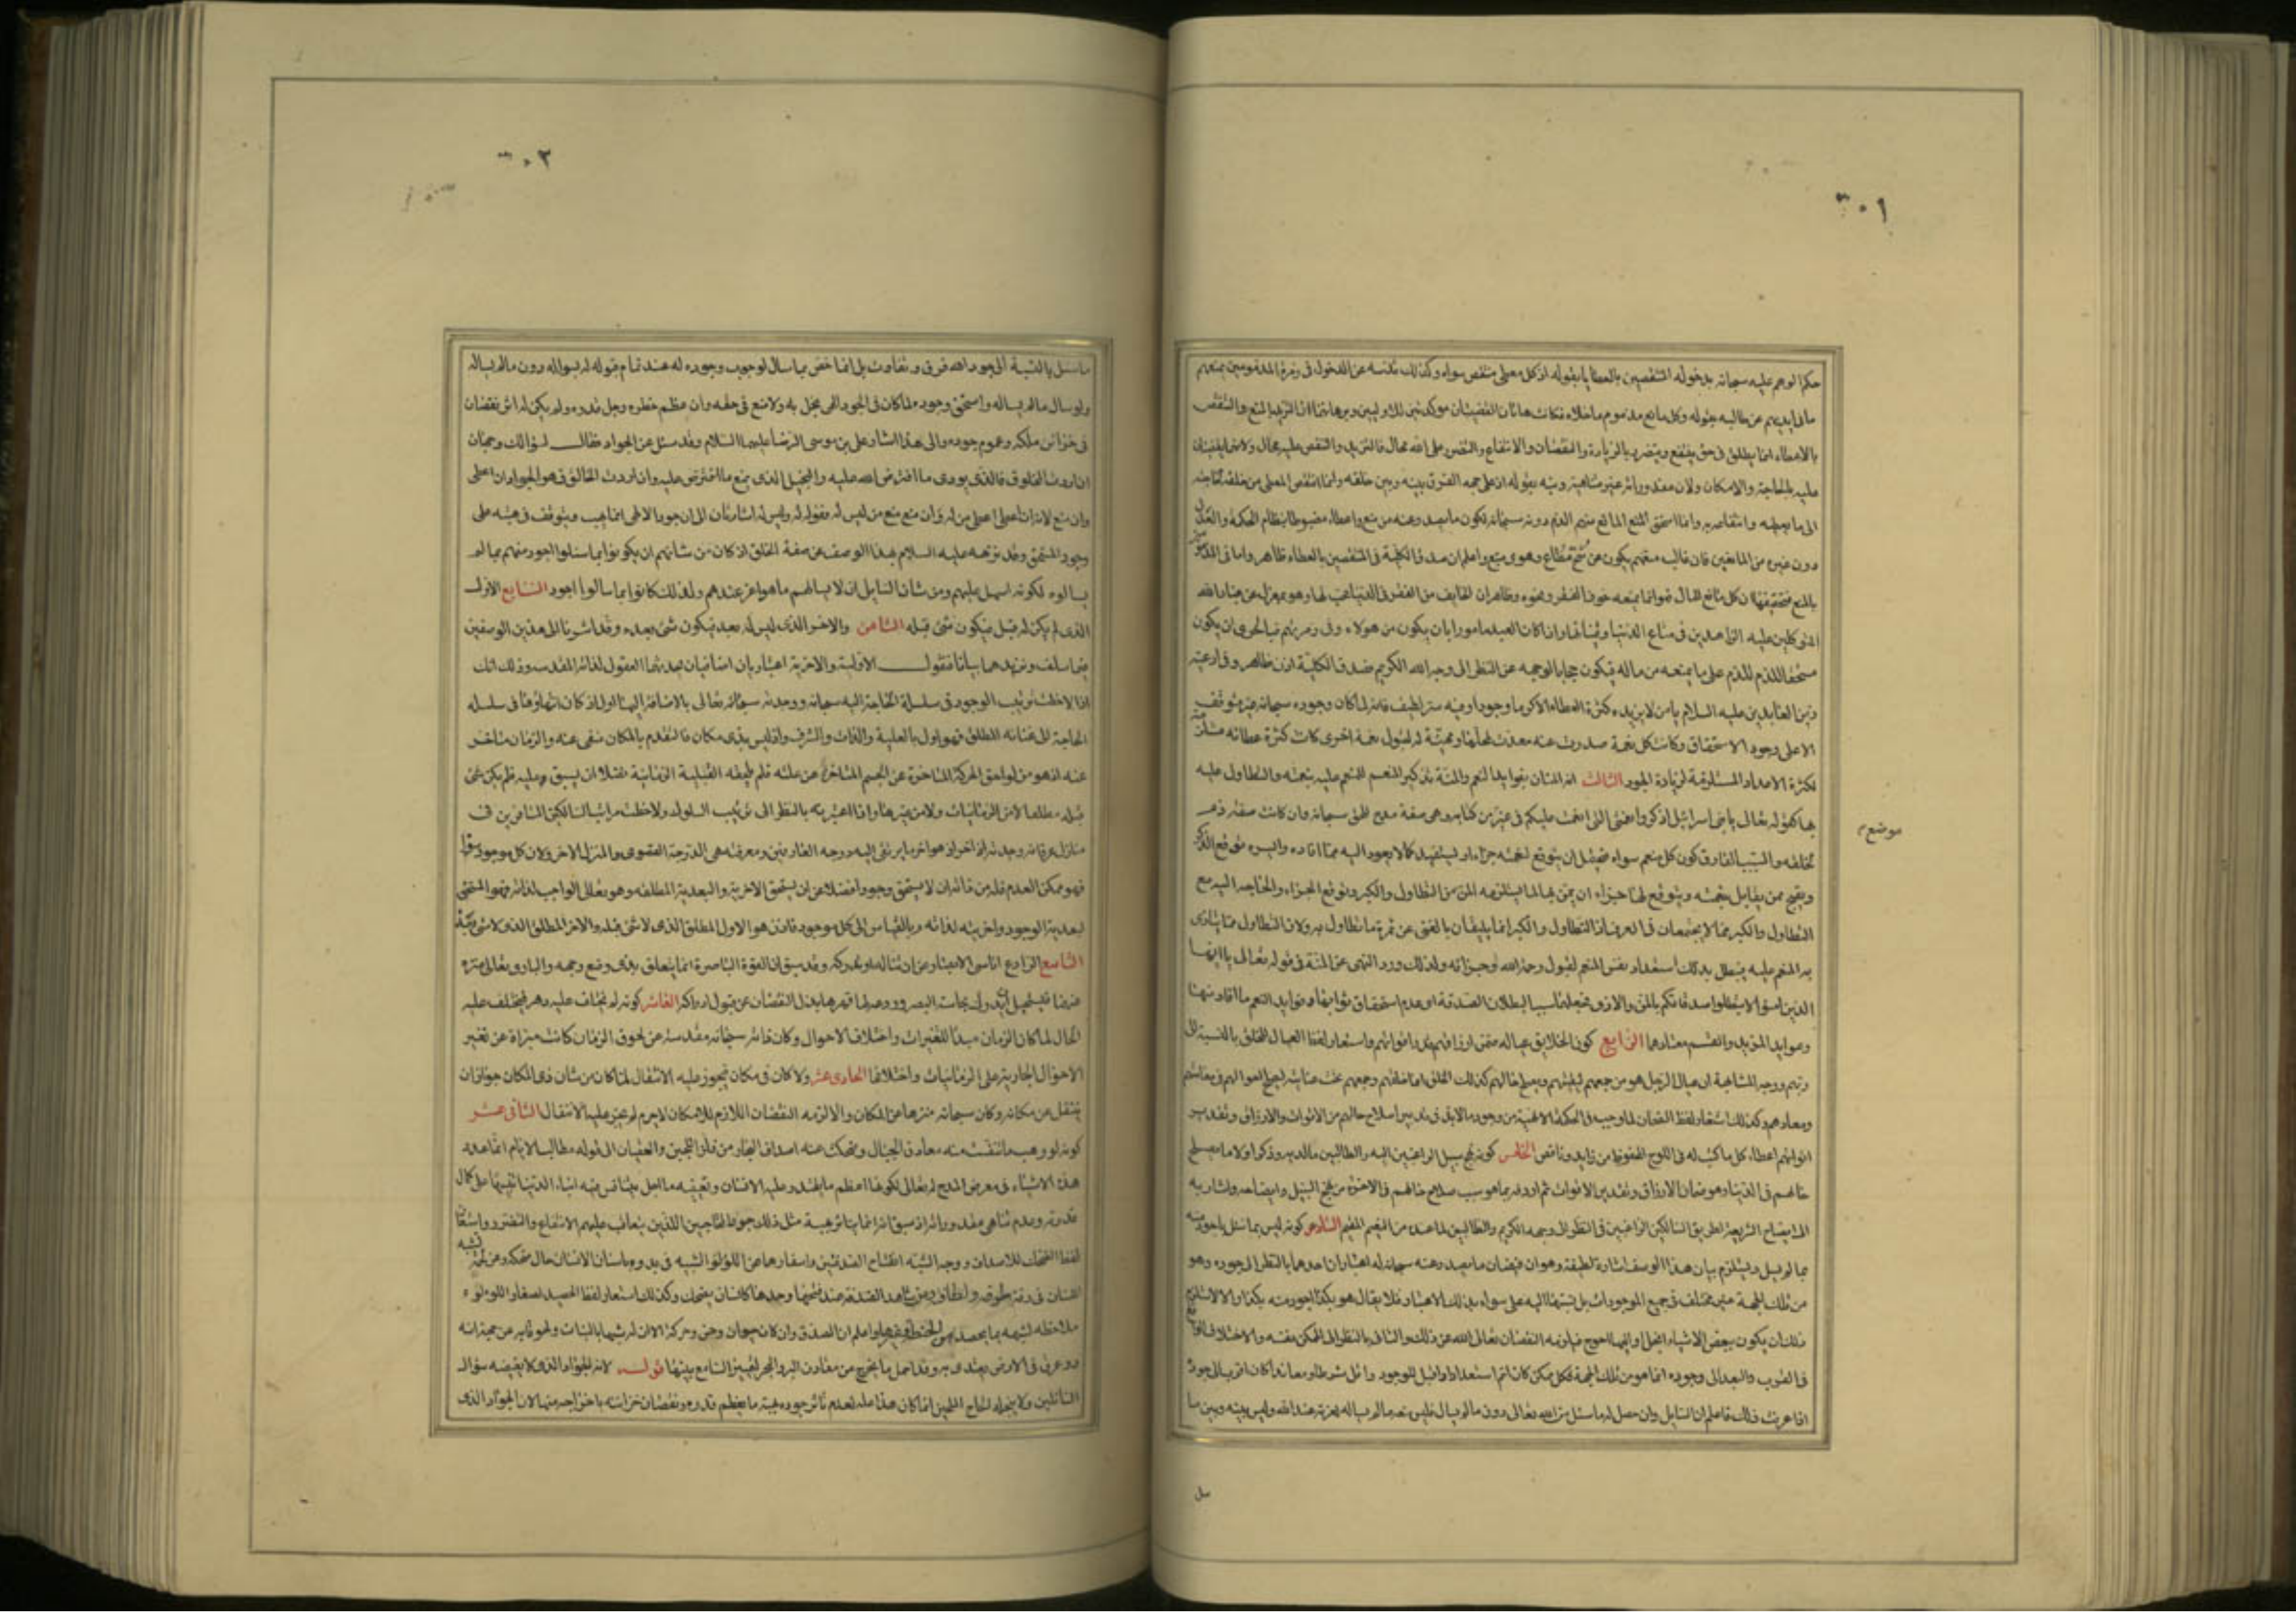 ٣٠١
حكم الوهم عليه سبحانه بدخوله المنتقصين بالعطايا بقوله اذ كل معط منتقص سواه وكذلك تنزيهه عن الدخول فى زمرة المذمومين بمنعهم
ما فى ايديهم عن طالبيه بقوله وكل مانع مذموم ما خلاه فكانت هاتان القضيتان موكدتين للاوليين وبرهانهما ان التزيد بالمنع والتنقص
بالاعطاء انما يطلق فى حق من ينتفع ويتضرر بالزيادة والنقصان والانتفاع والنقص على الله محال فالتزيد والتنقص عليه محال ولانهما يقضيان
عليه بالحاجة والامكان ولان مقدوراته غير متناهية ونبه بقوله اذ على جهة الفرق بينه وبين خلقه وانما انتقص المعطى من خلقه لحاجته
الى ما يعطيه وانتفاعه به وانما استحق المنع المانع منهم الذم دونه سبحانه لكون ما يصدر عنه من منع واعطاء مضبوطا بنظام الحكمة والعدل
دون غيره من المانعين فان غالب منعهم يكون عن شح مطاع وهوى متبع واعلم ان صدق الكلية فى المنتقصين بالعطاء ظاهر واما فى المذمومين
بالمنع فتحقيقها ان كل مانع للمال فهو انما يمنعه خوف الفقر ونحوه وظاهر ان الخايف من الفقر فى الدنيا محب لها وهو بمعزل عن عباد الله
المتوكلين عليه الزاهدين فى متاع الدنيا وقيناتها واذا كان العبد مامورا بان يكون من هولاء وفى زمرتهم فبالحرى ان يكون
مستحقا للذم على ما يمنعه من ماله فيكون حجابا لوجهه عن النظر الى وجه الله الكريم فصدق الكلية اذن ظاهر وفى ادعية
زين العابدين عليه السلام يا من لا يزيده كثرة العطاء الا كرما وجودا وفيه سر لطيف فانه لما كان وجوده سبحانه غير متوقف
الا على وجود الاستحقاق وكانت كل نعمة صدرت عنه معدة لمحلها ومهيئة له لقبول نعمة اخرى كانت كثرة عطائه مستلزمة
لكثرة الاعداد المستلزمة لزيادة الجود الثالث انه المنان بفوايد النعم والمنة تذكير المنعم للمنعم عليه بنعمته والتطاول عليه
بها كقوله تعالى يا بنى اسرائيل اذكروا نعمتى التى انعمت عليكم فى غير من كتابه وهى صفة مدح للحق سبحانه وان كانت صفة ذم
موضع م
لخلقه والسبب الفارق كون كل منعم سواه فيحتمل ان يتوقع لنعمته جزاء او ليستفيد كمالا يعود اليه مما افاده وايسره توقع الذكر
ويقبح ممن يقابل بنعمته ويتوقع لها جزاء ان يمن بها لما يستلزمه المن من التطاول والكبر وتوقع الجزاء والحاجة اليه مع
التطاول والكبر مما لا يجتمعان فى العرف اذ التطاول والكبر انما يليقان بالغنى عن ثمرة ما تطاول به ولان التطاول مما يتاذى
به المنعم عليه فيبطل بذلك استعداد نفس المنعم لقبول رحمة الله وجزائه ولذلك ورد النهى عن المنة فى قوله تعالى يا ايها
الذين امنوا لا تبطلوا صدقاتكم بالمن والاذى فجعلهما سببا لبطلان الصدقة اى عدم استحقاق ثوابها وفوايد النعم ما افاد منها
وعوايد المزيد والقسم معتادهما الرابع كون الخلايق عياله ضمن ارزاقهم وقدر اقواتهم واستعار لفظ العيال للخلق بالنسبة الى
ربهم ووجه المشابهة ان عيال الرجل هو من جمعهم ليقيتهم ويصلح حالهم كذلك الخلق انما خلقهم وجمعهم تحت عنايته ليصلح احوالهم فى معاشهم
ومعادهم وكذلك استعار لفظ الضمان لما وجب فى الحكمة الالهية من وجود ما لا بد فى تدبير اصلاح حالهم من الاقوات والارزاق وتقدير
اقواتهم اعطاء كل ما كتب له فى اللوح المحفوظ من زايد وناقص الخامس كونه نهج سبيل الراغبين اليه والطالبين ما لديه وذكر اولا ما يصلح
حالهم فى الدنيا وهو ضمان الارزاق وتقدير الاقوات ثم اردفه بما هو سبب صلاح حالهم فى الاخرة من نهج السبيل وايضاحه واشار به
الى ايضاح الشريعة لطريق السالكين الراغبين فى النظر الى وجهه الكريم والطالبين لما عنده من النعيم المقيم السادس كونه ليس بما سئل باجود منه
بما لم يسئل ويستلزم بيان هذا الوصف اشارة لطيفة وهو ان فيضان ما يصدر عنه سبحانه له اعتباران احدهما بالنظر الى جوده وهو
من تلك الجهة غير مختلف فى جميع الموجودات بل نسبتها اليه على سواء بذلك الاعتبار فلا يقال هو بكذا اجود منه بكذا والا لاستلزم
ذلك ان يكون ببعض الاشياء ابخل او اليها احوج فيلزمه النقصان تعالى الله عن ذلك والثانى بالنظر الى الممكن نفسه والاختلاف الواقع
فى القرب والبعد الى وجوده انما هو من تلك الجهة فكل ممكن كان اتم استعدادا واقبل للوجود واقل شرطا ومعاندا كان اقرب الى جوده
اذا عرفت ذلك فاعلم ان السايل وان حصل له ما سئل من الله تعالى دون ما لم يسال فليس منعه ما لم يساله لعزته عند الله وليس بينه وبين ما
سل
٣٠٢
ما سئل بالنسبة الى جود الله فرق وتفاوت بل انما خص بما سال لوجوب وجوده له عند تمام قبوله له بسواله دون ما لم يساله
ولو سال ما لم يساله واستحق وجوده لما كان فى الجود الهى بخل به ولا منع فى حقه وان عظم خطره وجل قدره ولم يكن له اثر نقصان
فى خزائن ملكه وعموم جوده والى هذا اشار على بن موسى الرضا عليهما السلام وقد سئل عن الجواد فقال لسؤالك وجهان
ان اردت المخلوق فالذى يودى ما افترض الله عليه والبخيل الذى يمنع ما افترض عليه وان اردت الخالق فهو الجواد ان اعطى
وان منع لانه ان اعطى اعطى من له وان منع منع من ليس له فقوله له وليس له اشارتان الى ان جوده الالهى انما يهب ويتوقف فى هبته على
وجود المستحق وقد نزهه عليه السلام بهذا الوصف عن صفة الخلق اذ كان من شانهم ان يكونوا بما سئلوا اجود منهم بما لم
يسالوه لكونه اسهل عليهم ومن شان السايل ان لا يسالهم ما هو اعز عندهم ولذلك كانوا بما سالوا اجود السابع الاول
الذى لم يكن له قبل فيكون شىء قبله الثامن والاخر الذى ليس له بعد فيكون شىء بعده وقد اشرنا الى هذين الوصفين
فيما سلف ونزيدهما بيانا فنقول الاولية والاخرية اعتباران اضافيان يحدثهما العقول لذاته المقدسة وذلك انك
اذا لاحظت ترتيب الوجود فى سلسلة الحاجة اليه سبحانه وجدته سبحانه تعالى بالاضافة اليها اول اذ كان انتهاؤها فى سلسلة
الحاجة الى غنائه المطلق فهو اول بالعلية والذات والشرف واذ ليس بذى مكان فالتقدم بالمكان منفى عنه والزمان متاخر
عنه اذ هو من لواحق الحركة المتاخرة عن الجسم المتاخر عن علته فلم يلحقه القبلية الزمانية فضلا ان يسبق عليه فلم يكن شىء
قبله مطلقا لا من الزمانيات ولا من غيرها واذا اعتبرته بالنظر الى ترتيب السلوك ولاحظت مراتب السالكين المسافرين فى
منازل عرفانه وجدته اخرا اذ هو اخر ما يرتقى اليه درجة العارفين ومعرفته هى الدرجة القصوى والمنزل الاخر ولان كل موجود سواه
فهو ممكن العدم فله من ذاته ان لا يستحق وجودا فضلا عن ان يستحق الاخرية والبعدية المطلقة وهو تعالى الواجب لذاته فهو المستحق
لبعدية الوجود واخريته لذاته وبالقياس الى كل موجود فاذن هو الاول المطلق الذى لا شىء قبله والاخر المطلق الذى لا شىء بعده
التاسع الرادع اناسى الابصار عن ان تناله او تدركه وقد سبق ان القوة الباصرة انما يتعلق بذى وضع وجهة والبارى تعالى منزه
عنهما فيستحيل ان يدرك بحاسة البصر وردعه لها قهرها بذل النقصان عن قبول ادراكه العاشر كونه لم يختلف عليه دهر فيختلف عليه
الحال لما كان الزمان مبدأ للتغيرات واختلاف الاحوال وكان ذاته سبحانه مقدسة عن لحوق الزمان كانت مبراة عن تغير
الاحوال الجارية على الزمانيات واختلافها الحادى عشر ولا كان فى مكان فيجوز عليه الانتقال لما كان من شان ذى المكان جواز ان
ينتقل عن مكانه وكان سبحانه منزها عن المكان والا لزمه النقصان اللازم للامكان لاجرم لم يجز عليه الانتقال الثانى عشر
كونه لو وهب ما تنفست عنه معادن الجبال وضحكت عنه اصداف البحار من فلز اللجين والعقيان الى قوله مطالب الانام انما عدد
هذه الاشياء فى معرض المدح له تعالى لكونها اعظم ما يقتدر عليه الانسان ويقتنيه ما اجل يتنافس فيه ابناء الدنيا تنبيها على كمال
قدرته وعدم تناهى مقدوراته اذ سبق انه انما يتاثر بهبة مثل ذلك جود المحتاجين الذين يتعاقب عليهم الانتفاع والتضرر واستعار
لفظ الضحك للاصداف ووجه الشبه انفتاح الصدفتين واسفارهما عن اللؤلؤ الشبيه فى بدوه باسنان الانسان حال ضحكه وعن لحمة تشبه
اللسان فى رقة طرفه ولطافته ومن شاهد الصدفة عند فتحها وجدها كانسان يضحك وكذلك استعار لفظ الحصيد لصغار اللؤلؤ
ملاحظة لشبهه بما يحصد من الحنطة وغيرها واعلم ان الصدف وان كان حيوانا ذا حس وحركة الا ان له شبها بالنبات ولحوقا به من جهة انه
ذو عرق فى الارض يغتذى به وقد اجمل ما يخرج من معادن البر والبحر ليميز السامع بينهما قوله لانه الجواد الذى لا يغيضه سؤال
السائلين ولا يبخله الحاح الملحين انما كان هذا علة لعدم تاثر جوده بهبة ما يعظم قدره ونقصان خزانته باخراجه منها لان الجواد الذى